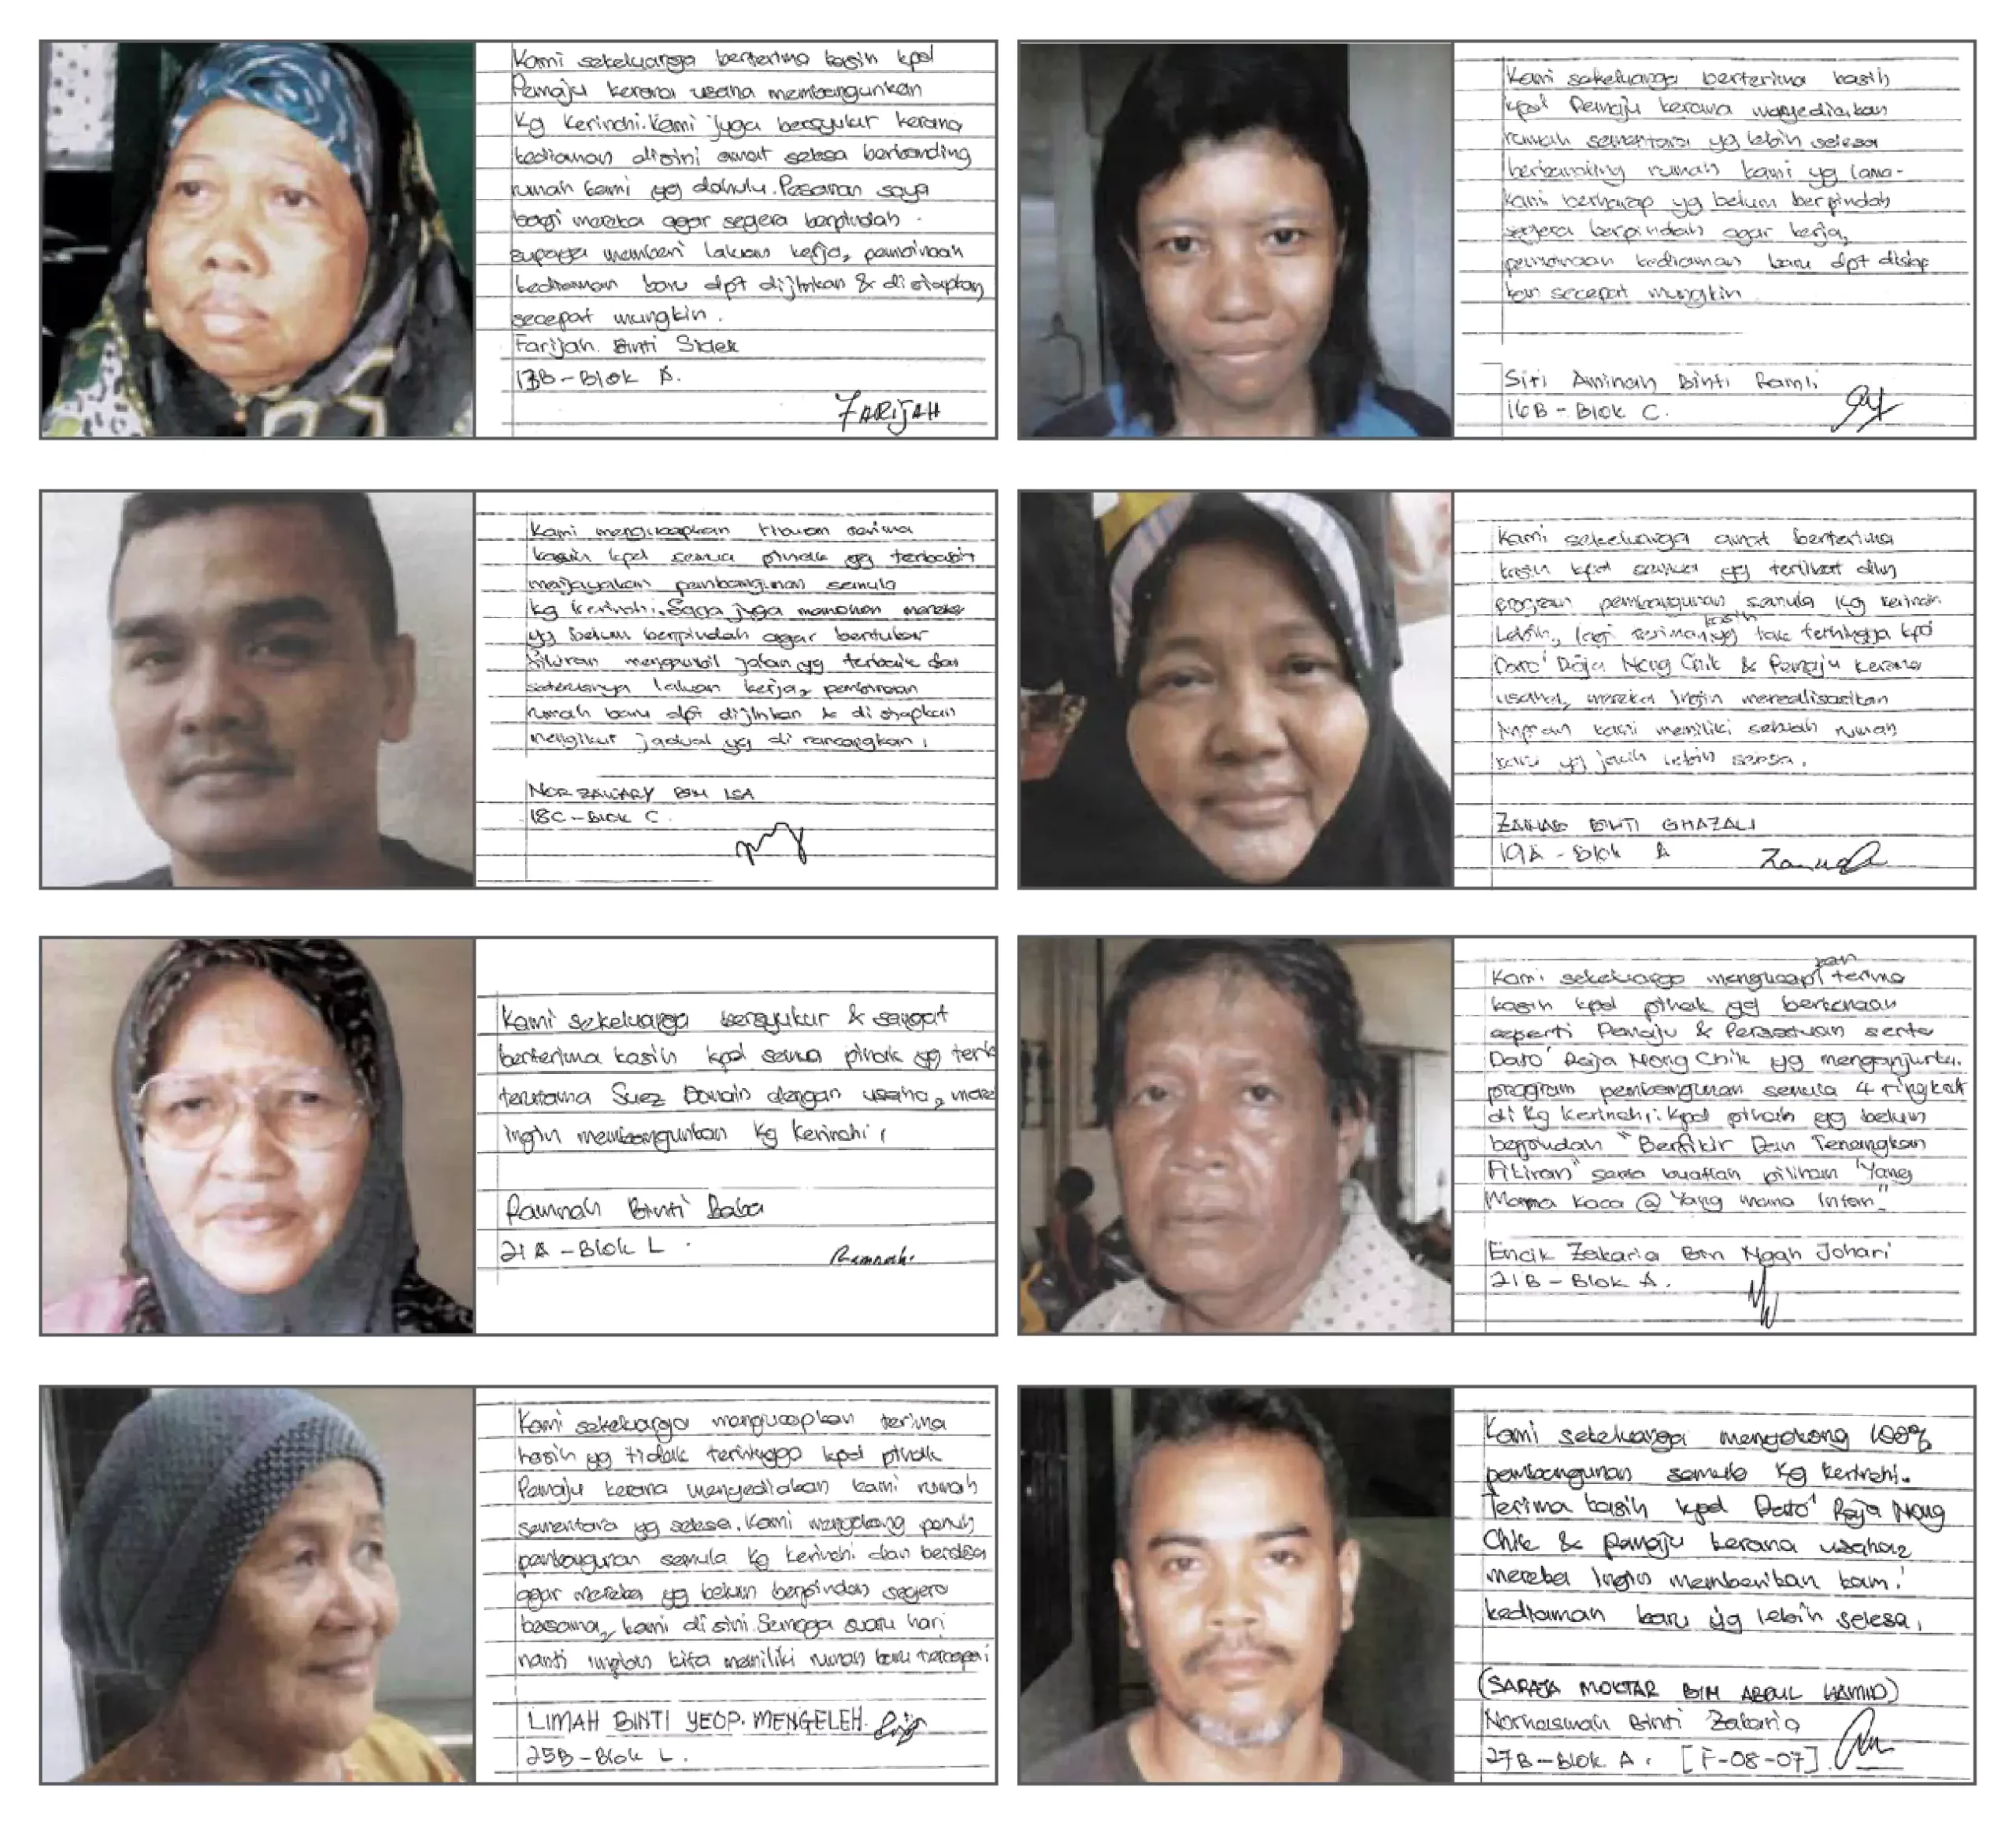 Kami sekeluarga berterima kasih kpd
Pemaju kerana usaha membangunkan
Kg Kerinchi. Kami juga bersyukur kerana
kediaman disini amat selesa berbanding
rumah kami yg dahulu. Pesanan saya
bagi mereka agar segera berpindah
supaya memberi laluan kerja2 pembinaan
kediaman baru dpt dijlnkan & disiapkan
secepat mungkin.
Farijah Binti Sidek
13B - Blok A.
FARIJAH
Kami sekeluarga berterima kasih
kpd Pemaju kerana menyediakan
rumah sementara yg lebih selesa
berbanding rumah kami yg lama.
Kami berharap yg belum berpindah
segera berpindah agar kerja2
pembinaan kediaman baru dpt disiap
kan secepat mungkin
Siti Aminah Binti Ramli
16B - Blok C.
Kami mengucapkan ribuan terima
kasih kpd semua pihak yg terbabit
menjayakan pembangunan semula
Kg Kerinchi. Saya juga memohon mereka
yg belum berpindah agar bertukar
fikiran mengambil jalan yg terbaik dan
seterusnya laluan kerja2 pembinaan
rumah baru dpt dijlnkan & di siapkan
mengikut jadual yg di rancangkan.
NOR ZAWARY BIN ISA
18C - Blok C.
Kami sekeluarga amat berterima
kasih kpd semua yg terlibat dlm
program pembangunan semula Kg Kerinchi
Lebih2 lagi terima kasih yg tak terhingga kpd
Dato' Raja Nong Chik & Pemaju kerana
usaha2 mereka ingin merealisasikan
impian kami memiliki sebuah rumah
baru yg jauh lebih selesa.
ZAINAB BINTI GHAZALI
19A - Blok A
Kami sekeluarga bersyukur & sangat
berterima kasih kpd semua pihak yg
terutama Suez Domain dengan usaha2
ingin membangunkan Kg Kerinchi.
Ramnah Binti Baba
21A - Blok L.
Ramnah
Kami sekeluarga mengucapkan terima
kasih kpd pihak yg berkenaan
seperti Pemaju & Persatuan serta
Dato' Raja Nong Chik yg menganjurkan
program pembangunan semula 4 tingkat
di Kg Kerinchi. Kpd pihak yg belum
berpindah "Berfikir Dan Tenangkan
Fikiran" serta buatlah pilihan "Yang
Mana Kaca @ Yang mana Intan"
Encik Zakaria Bin Ngah Johari
21B - Blok A.
Kami sekeluarga mengucapkan terima
kasih yg tidak terhingga kpd pihak
Pemaju kerana menyediakan kami rumah
sementara yg selesa. Kami menyokong penuh
pembangunan semula Kg Kerinchi dan berdoa
agar mereka yg belum berpindah segera
bersama2 kami di sini. Semoga suatu hari
nanti impian kita memiliki rumah baru tercapai
LIMAH BINTI YEOP. MENGELEH.
25B - Blok L.
Kami sekeluarga menyokong 100%
pembangunan semula Kg Kerinchi.
Terima kasih kpd Dato' Raja Nong
Chik & pemaju kerana usaha2
mereka ingin memberikan kami
kediaman baru yg lebih selesa.
(SARAJA MOKTAR BIN ABDUL HAMID)
Norhasimah Binti Zakaria
27B - Blok A. [F-08-07]